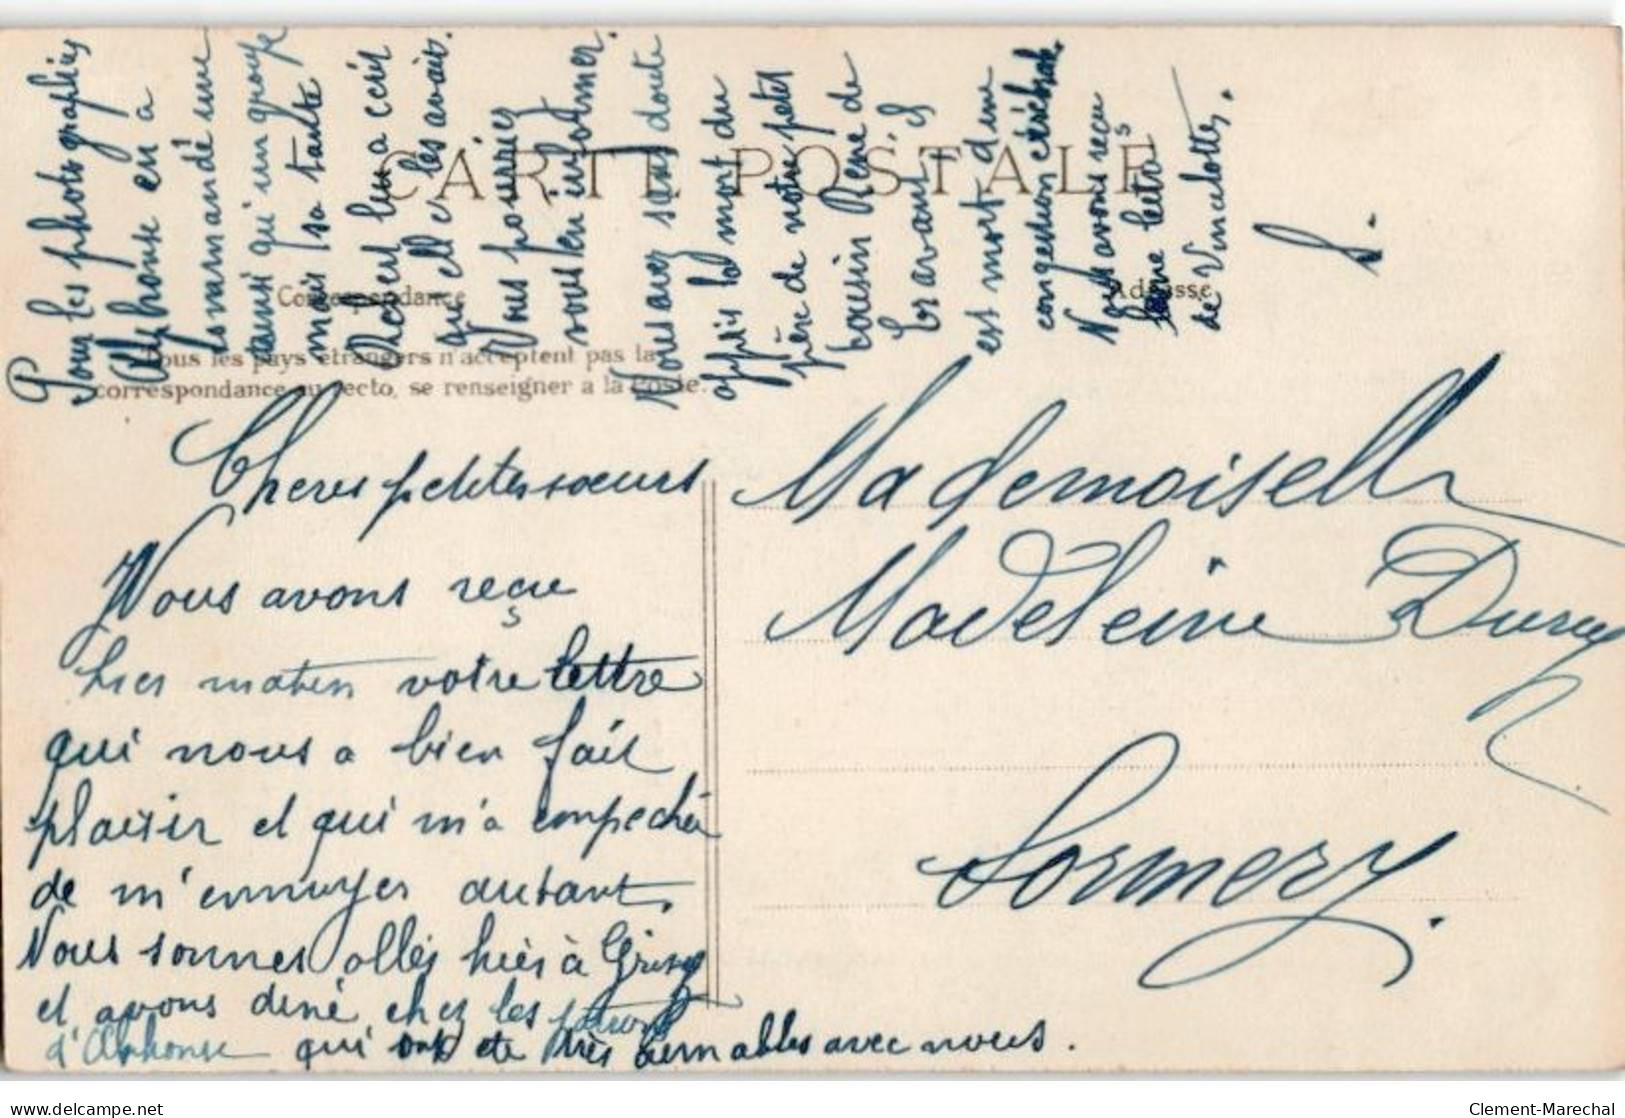 CARTE POSTALE
Correspondance
Adresse
Tous les pays étrangers n'acceptent pas la
correspondance au recto, se renseigner à la Poste.
Cheres petites sœurs
Nous avons reçu
hier matin votre lettre
qui nous a bien fait
plaisir et qui m'a empeché
de m'ennuyer autant.
Nous sommes allés hier à Grisy
et avons diné chez les parents
d'Alphonse qui ont été très aimables avec nous.
Pour les photographies
Alphonse en a
commandé une
aussi qu'un groupe
mais sa tante
Robert lui a écrit
qu'elle les avait.
Vous pourriez
vous en informer.
Vous avez sans doute
appris la mort du
père de notre petit
cousin René de
Coravant il
est mort d'une
congestion cérébrale
Nous avons reçu
une lettre
de Vincelottes.
S.
Mademoiselle
Madeleine Durey
Sormery.
delcampe.net
Clement-Marechal